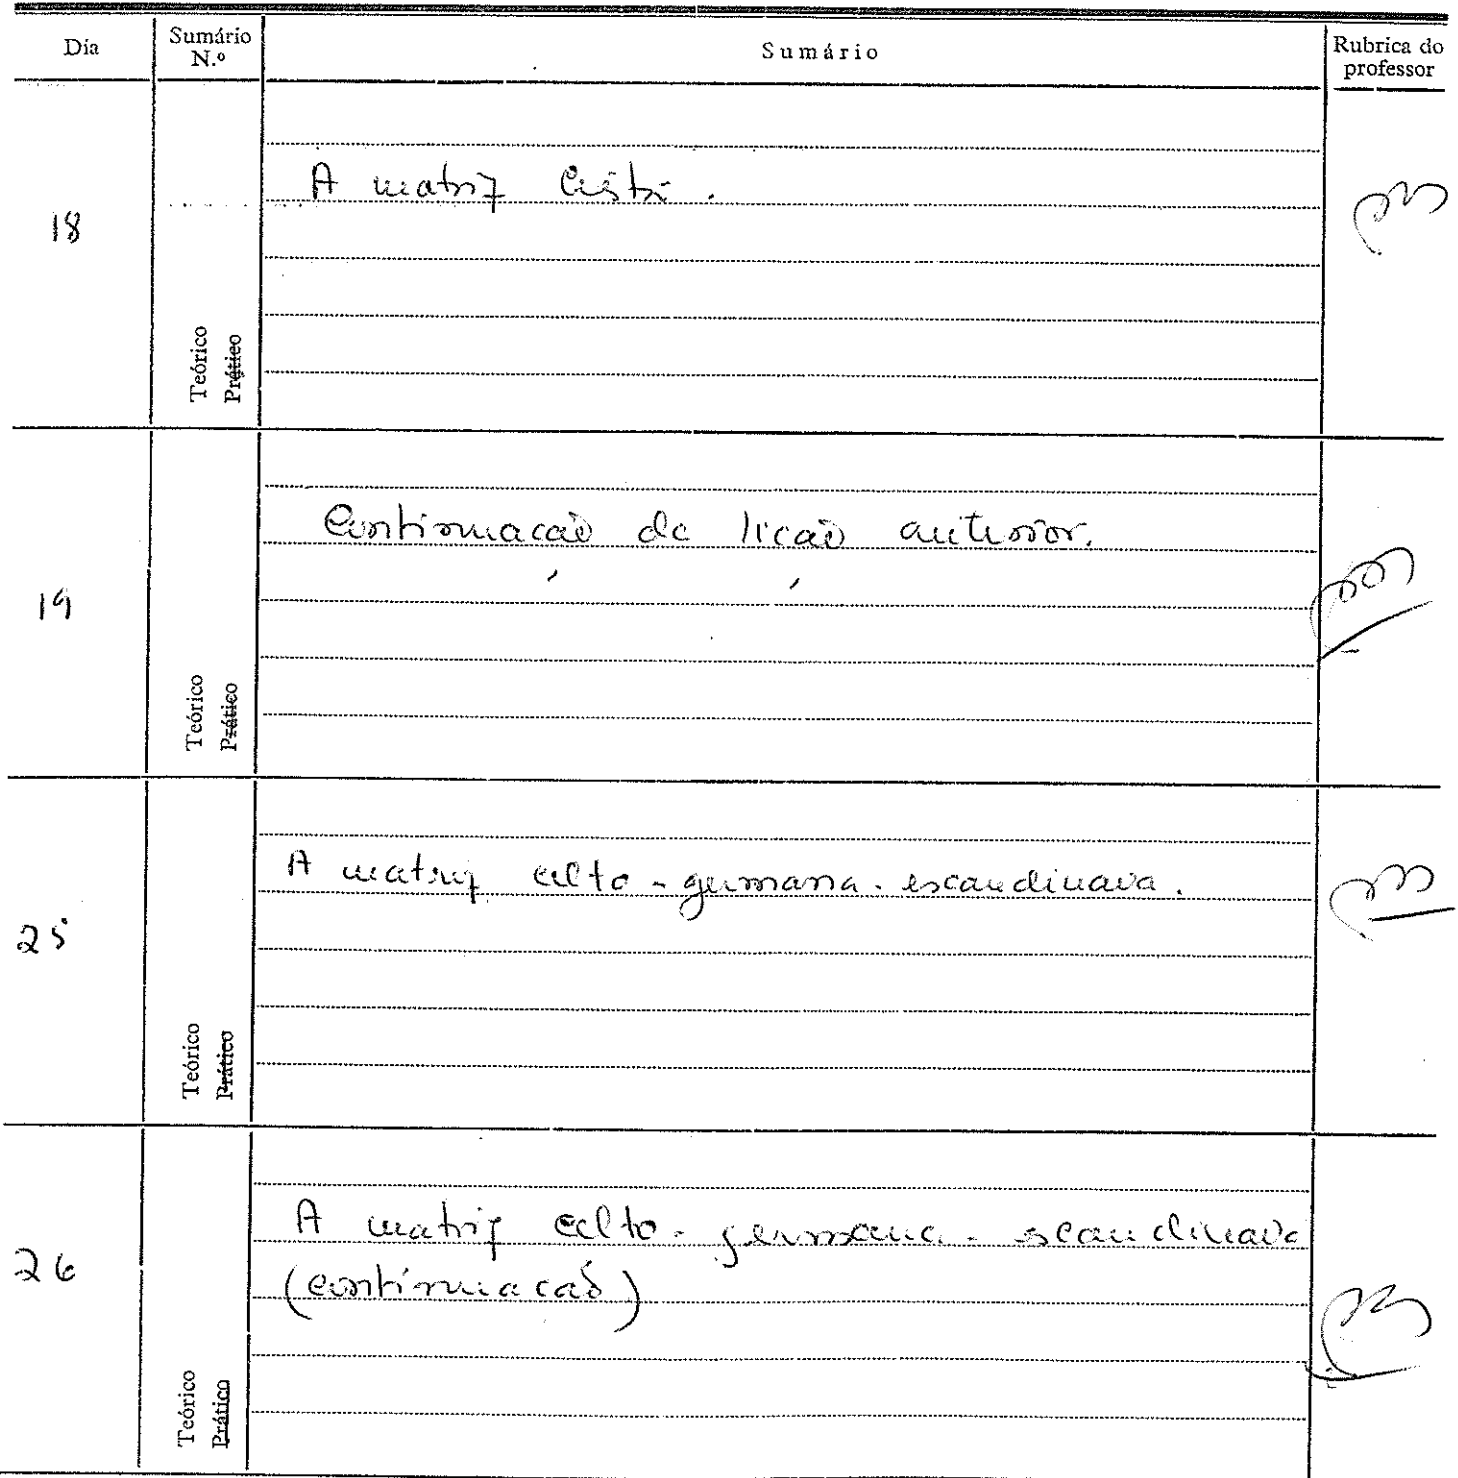 Dia Sumário N.º Sumário Rubrica do professor
18
A matriz Cristã.
Teórico
Prático
19
Continuação da lição anterior.
Teórico
Prático
25
A matriz celto-germana-escandinava.
Teórico
Prático
26
A matriz celto-germana-escandinava
(continuação)
Teórico
Prático